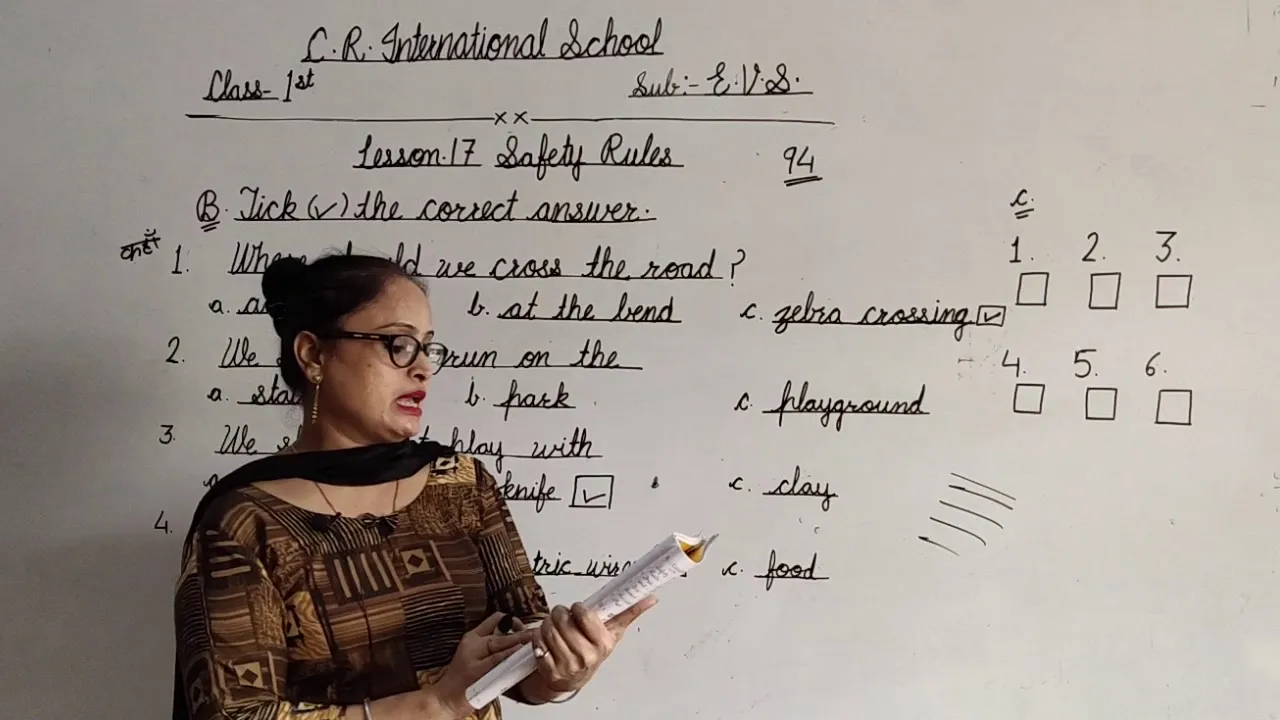 C. R. International School
Class- 1st Sub:- E.V.S.
x x
Lesson.17 Safety Rules 94
B. Tick (✓) the correct answer.
कहाँ 1. we cross the road?
a. b. at the bend c. zebra crossing ✓
2. We run on the
a. b. park c. playground
3. We play with
knife ✓ c. clay
4.
c. food
C.
1. 2. 3.
4. 5. 6.